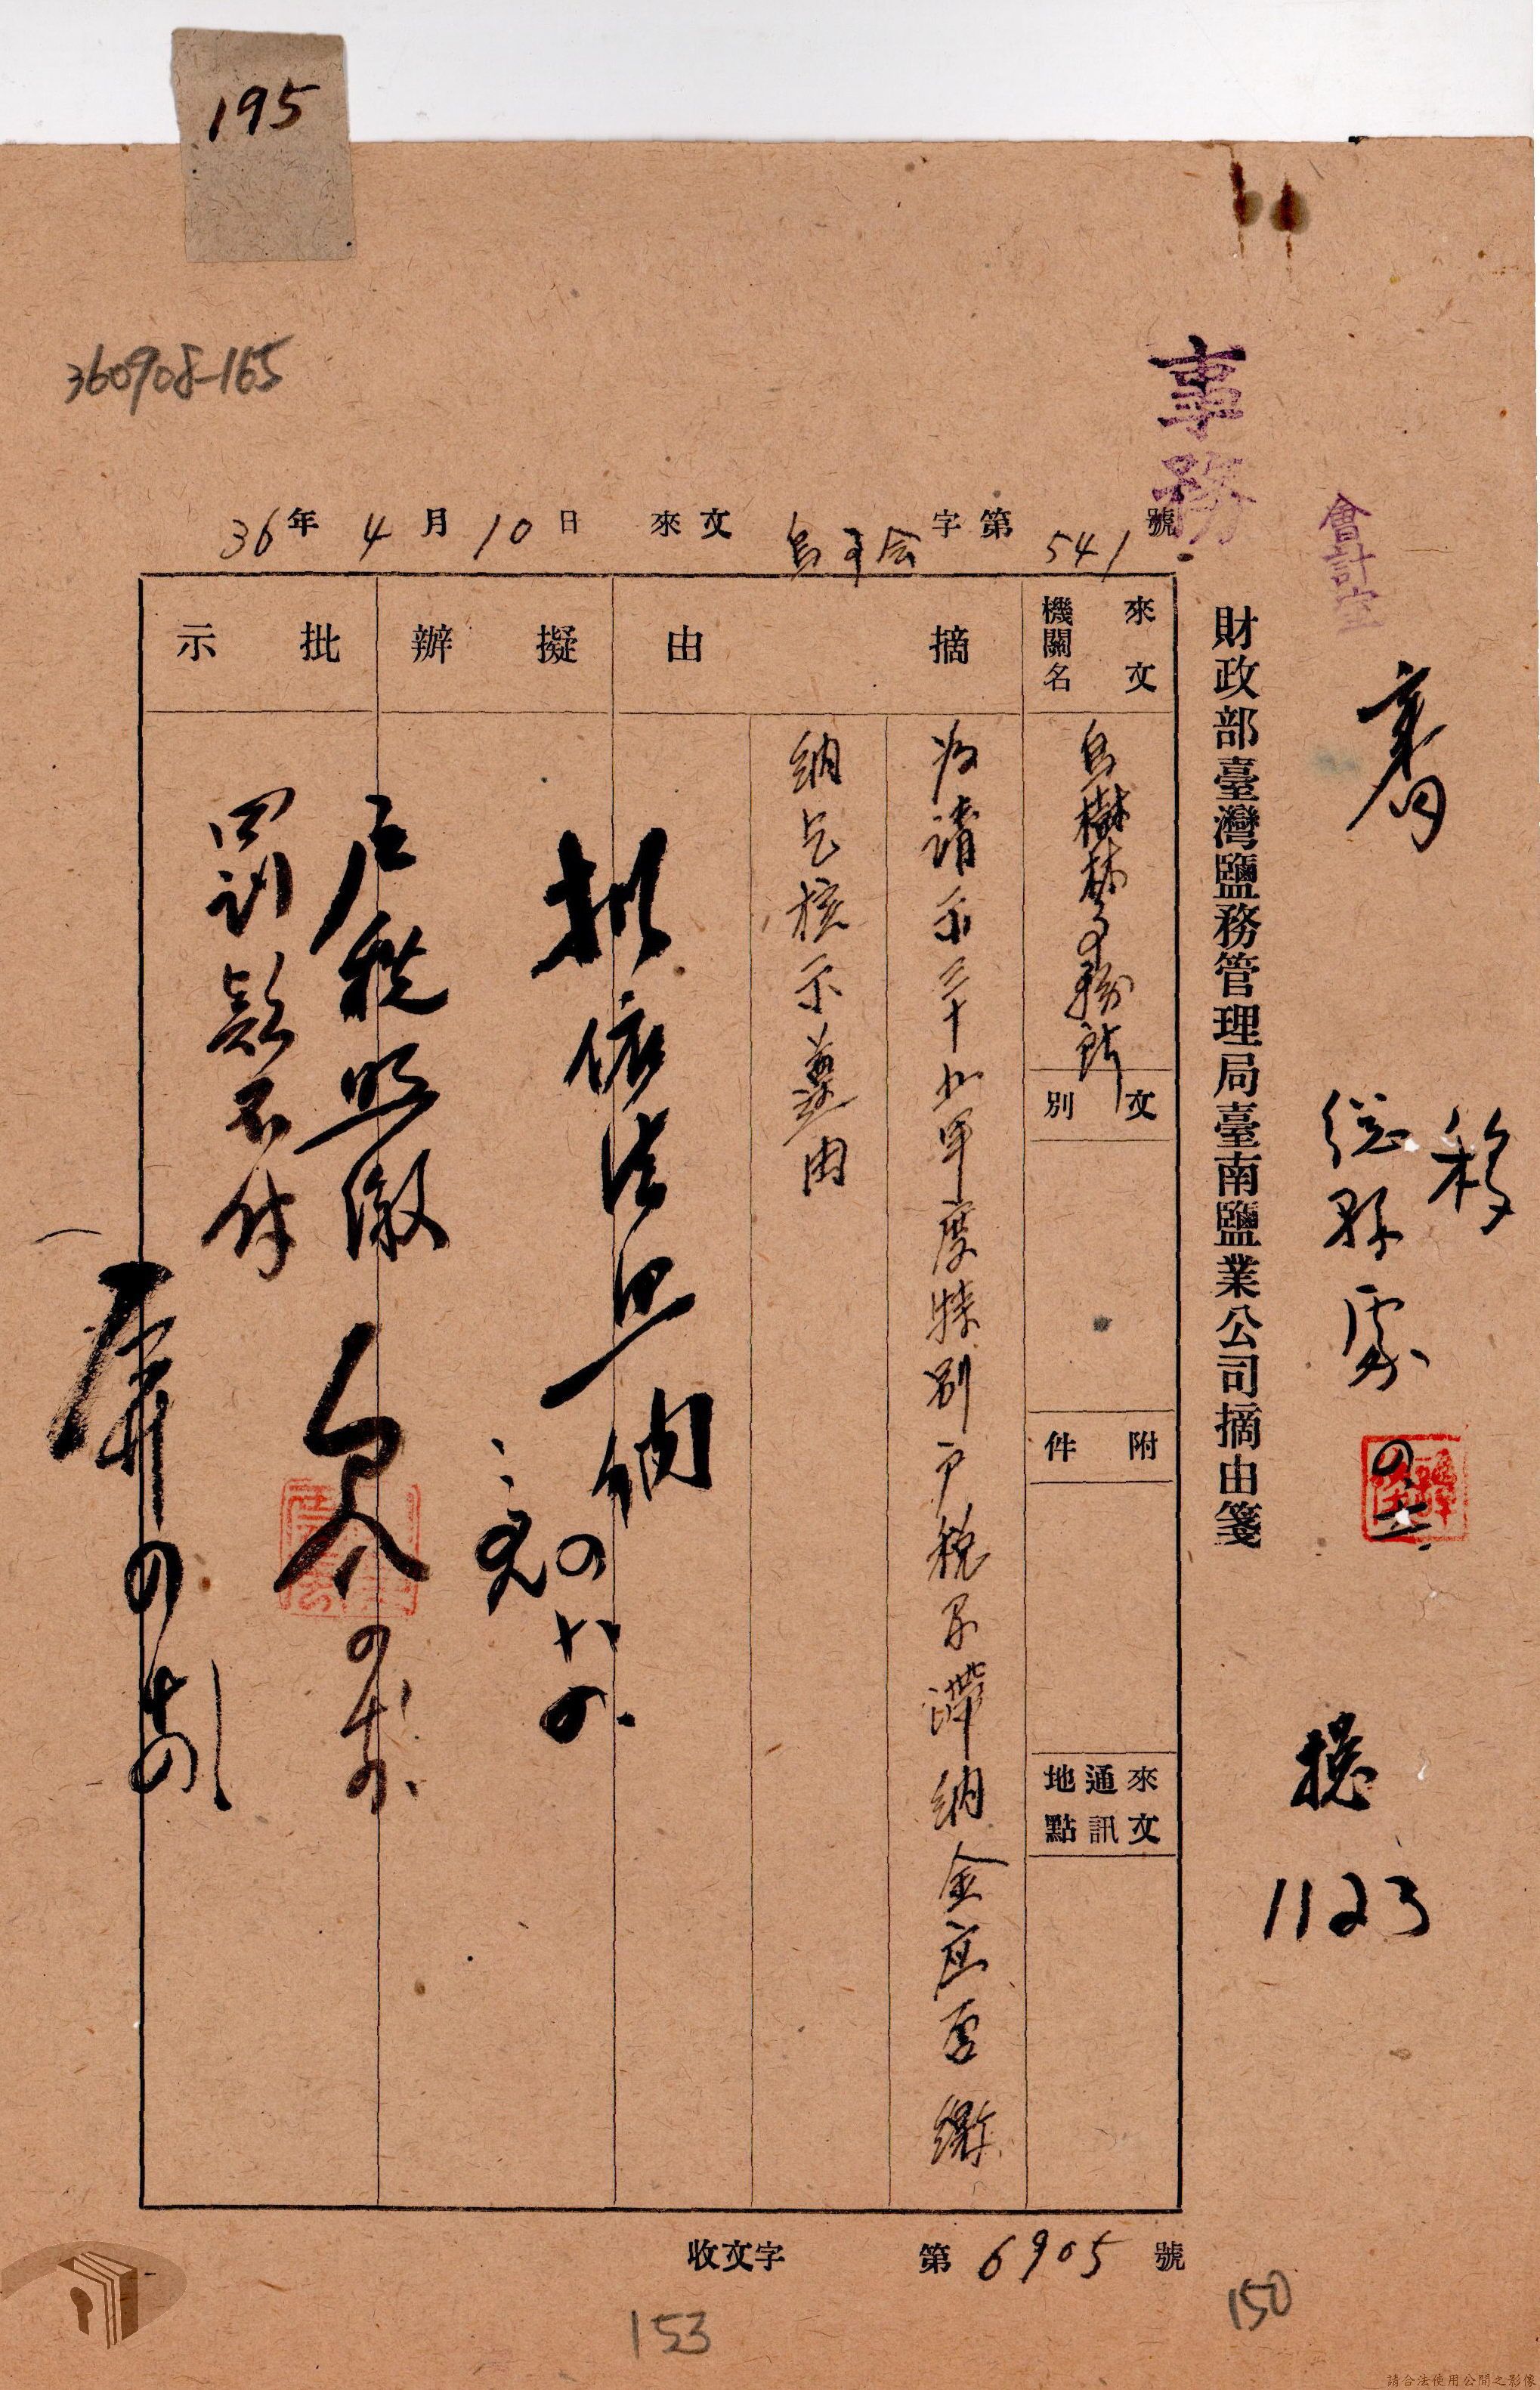 195
360908-165
事務
會計室
36年4月10日 來文 烏事会字第541號
財政部臺灣鹽務管理局臺南鹽業公司摘由箋
移
總務處
1123
來文機關名
烏樹林事務所
文別
附件
來文通訊地點
摘由
為請示三十五年度特別戶稅及滯納金應否繳
納乞核示遵由
擬辦
擬依法照納
批示
戶稅照繳
罰款不付
收文字 第6905號
153
150
請合法使用公開之影像